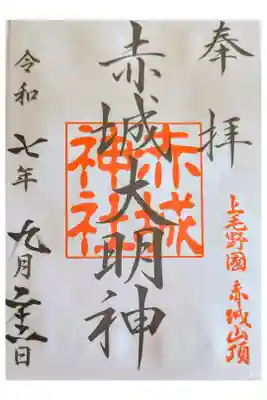 奉拝
上毛野國 赤城山頂
赤城大明神
赤城
神社
令和七年九月二十六日